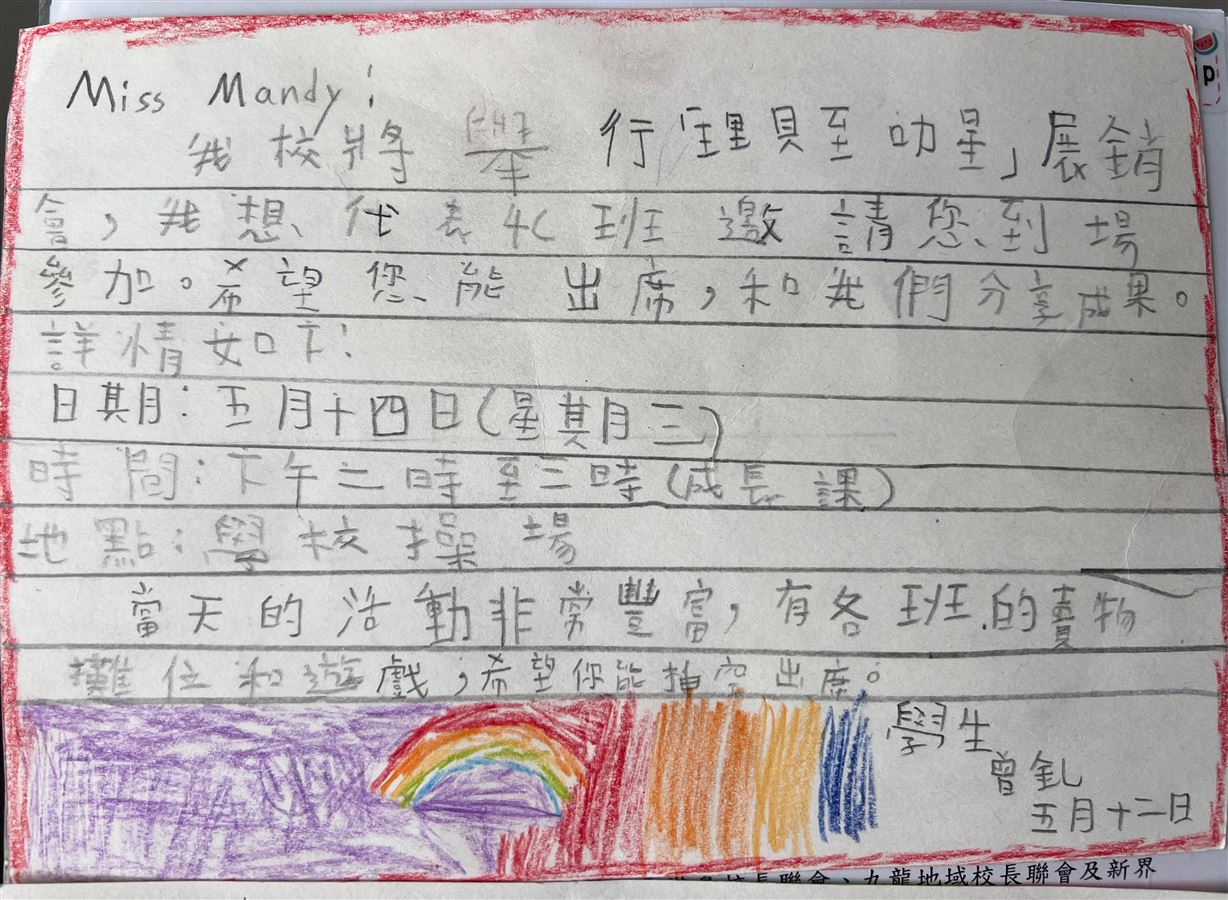 Miss Mandy:
我校將舉行「理貝至叻星」展銷
會,我想代表4C班邀請您到場
參加。希望您能出席,和我們分享成果。
詳情如下:
日期:五月十四日(星期三)
時間:下午二時至三時(成長課)
地點:學校操場
當天的活動非常豐富,有各班的賣物
攤位和遊戲,希望你能抽空出席。
學生
曾釓
五月十二日
校長聯會、九龍地域校長聯會及新界
p